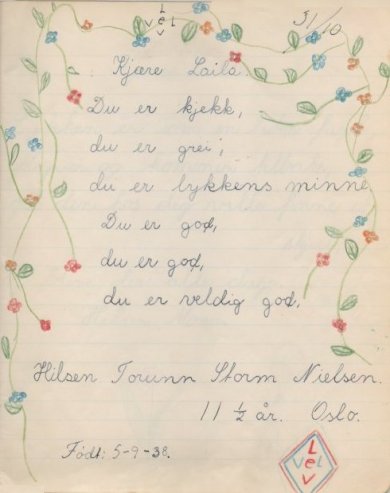 L
vel
v
31/10
Kjære Laila
Du er kjekk,
du er grei,
du er lykkens minne
Du er god,
du er god,
du er veldig god,
Hilsen Torunn Storm Nielsen.
11 ½ år. Oslo.
Født: 5-9-38.
L
vel
v